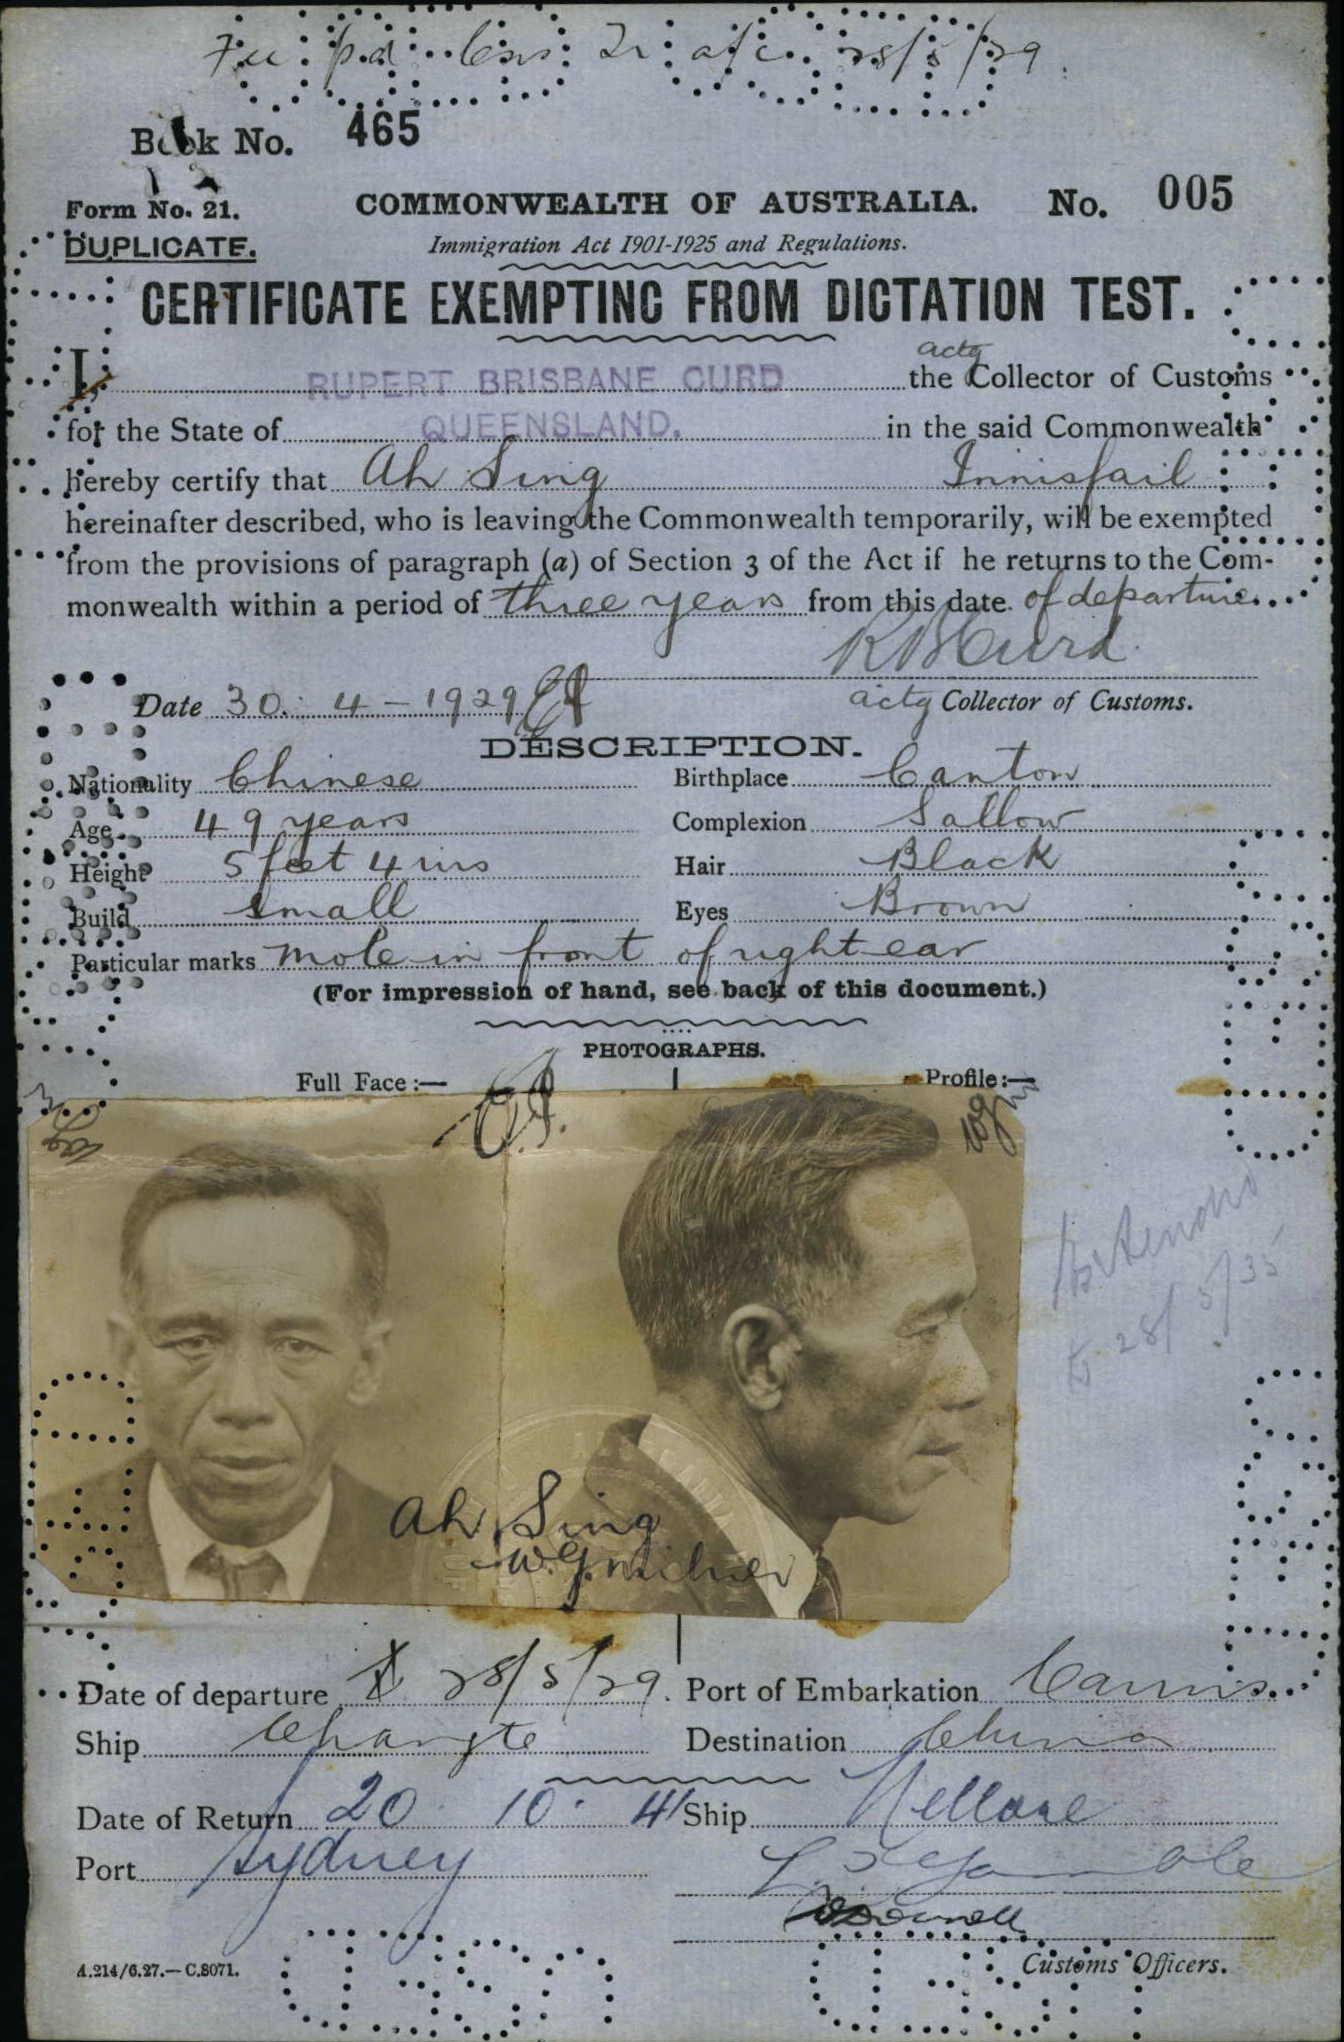 pd 28/5/29
Book No. 465
Form No. 21. COMMONWEALTH OF AUSTRALIA. No. 005
DUPLICATE. Immigration Act 1901-1925 and Regulations.
CERTIFICATE EXEMPTING FROM DICTATION TEST.
I, RUPERT BRISBANE CURD the actg Collector of Customs
for the State of QUEENSLAND. in the said Commonwealth
hereby certify that Ah Sing Innisfail
hereinafter described, who is leaving the Commonwealth temporarily, will be exempted
from the provisions of paragraph (a) of Section 3 of the Act if he returns to the Com-
monwealth within a period of three years from this date of departure
R B Curd
Date 30. 4 - 1929 actg Collector of Customs.
DESCRIPTION.
Nationality Chinese Birthplace Canton
Age 49 years Complexion Sallow
Height 5 feet 4 ins Hair Black
Build small Eyes Brown
Particular marks mole in front of right ear
(For impression of hand, see back of this document.)
PHOTOGRAPHS.
Full Face :— Profile :—
Ah Sing
W.G. Milner
to 28/5/35
Date of departure 28/5/29. Port of Embarkation Cairns.
Ship Changte Destination China
Date of Return 20. 10. 41 Ship Nellore
Port Sydney
A.214/6.27.—C.8071. Customs Officers.